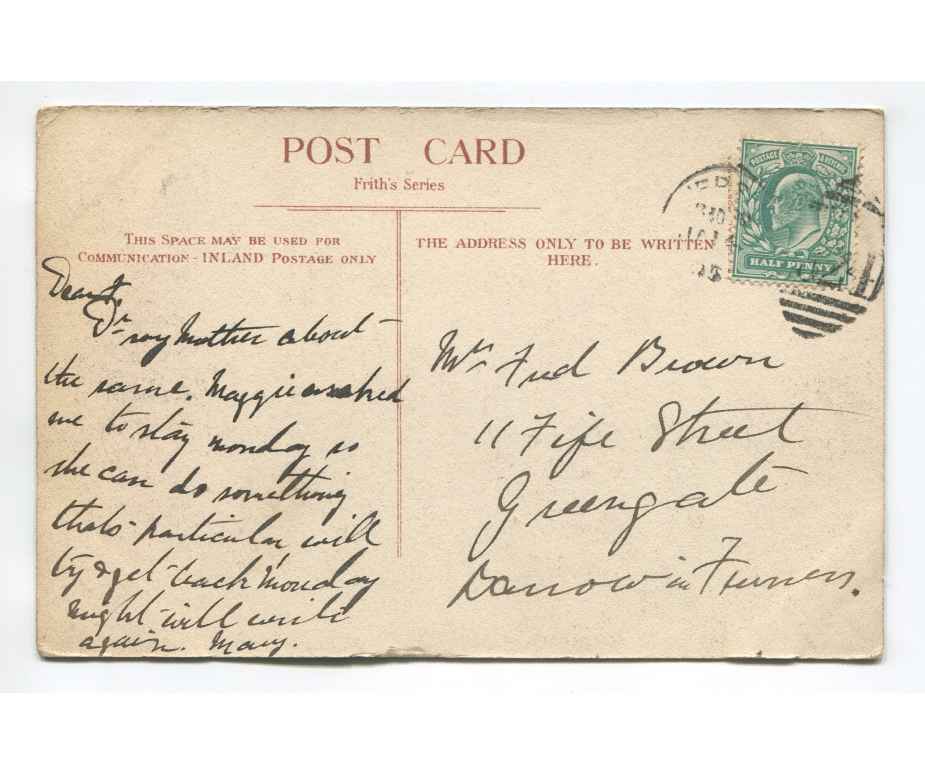 POST CARD
Frith's Series
THIS SPACE MAY BE USED FOR
COMMUNICATION - INLAND POSTAGE ONLY
THE ADDRESS ONLY TO BE WRITTEN
HERE.
POSTAGE
HALF PENNY
Dear F.
my Mother about
the same. Maggie asked
me to stay monday so
she can do something
thats particular will
try & get back Monday
night will write
again. Mary.
Mr Fred Brown
11 Fife Street
Greengate
Barrow in Furness.